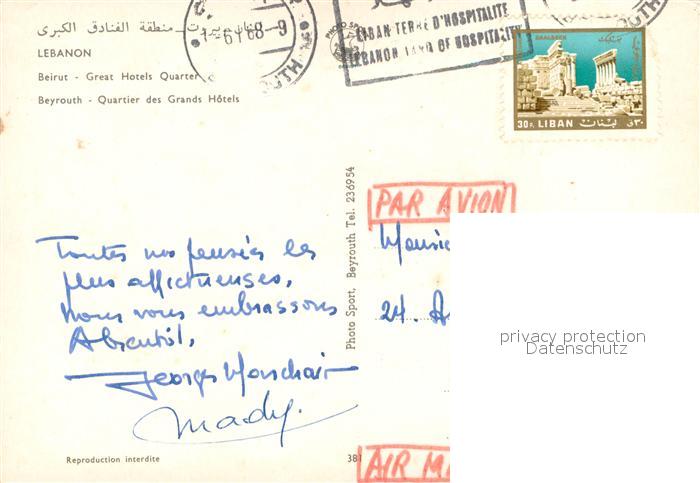 لبنان بيروت - منطقة الفنادق الكبرى
LEBANON
Beirut - Great Hotels Quarter
Beyrouth - Quartier des Grands Hôtels
68-9
LIBAN TERRE D'HOSPITALITE
LEBANON LAND OF HOSPITALITY
BAALBECK
30 P. LIBAN لبنان ٣٠ ق
PAR AVION
Toutes nos pensées les
plus affectueuses,
nous vous embrassons
Georges
Mady.
Photo Sport, Beyrouth Tel. 236954
Monsie
24. A
privacy protection
Datenschutz
Reproduction interdite
381
AIR MA